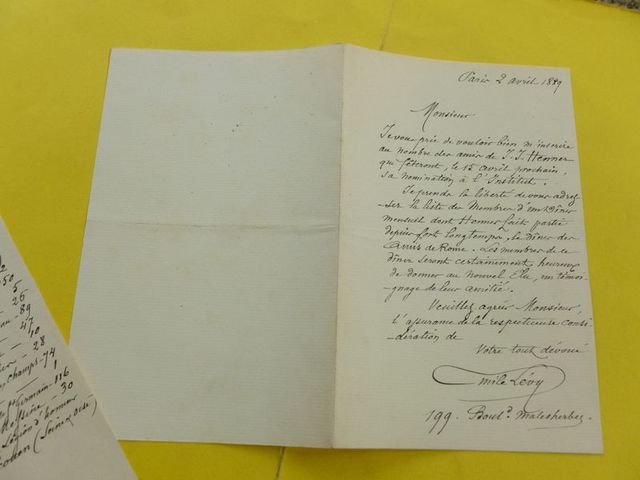 Paris 2 avril 1889
Monsieur
Je vous prie de vouloir bien m'inscrire
au nombre des amis de J. J. Henner
qui fêteront, le 15 avril prochain,
sa nomination à l'Institut.
Je prends la liberté de vous adres
-ser la liste des Membres d'un Dîner
mensuel dont Henner fait partie
depuis fort longtemps, le dîner des
de Rome. Les membres de ce
dîner seront certainement heureux
de donner au nouvel Élu, un témoi-
gnage de leur amitié.
Veuillez agréer Monsieur,
l'assurance de la respectueuse consi
-dération de
Votre tout dévoué
Emile Lévy
199. Boul.d Malesherbes.
50
5
26
89
47
10
28
Champs-74
1
Germain-116
30
Légion d'honneur
(Seine & Oise)